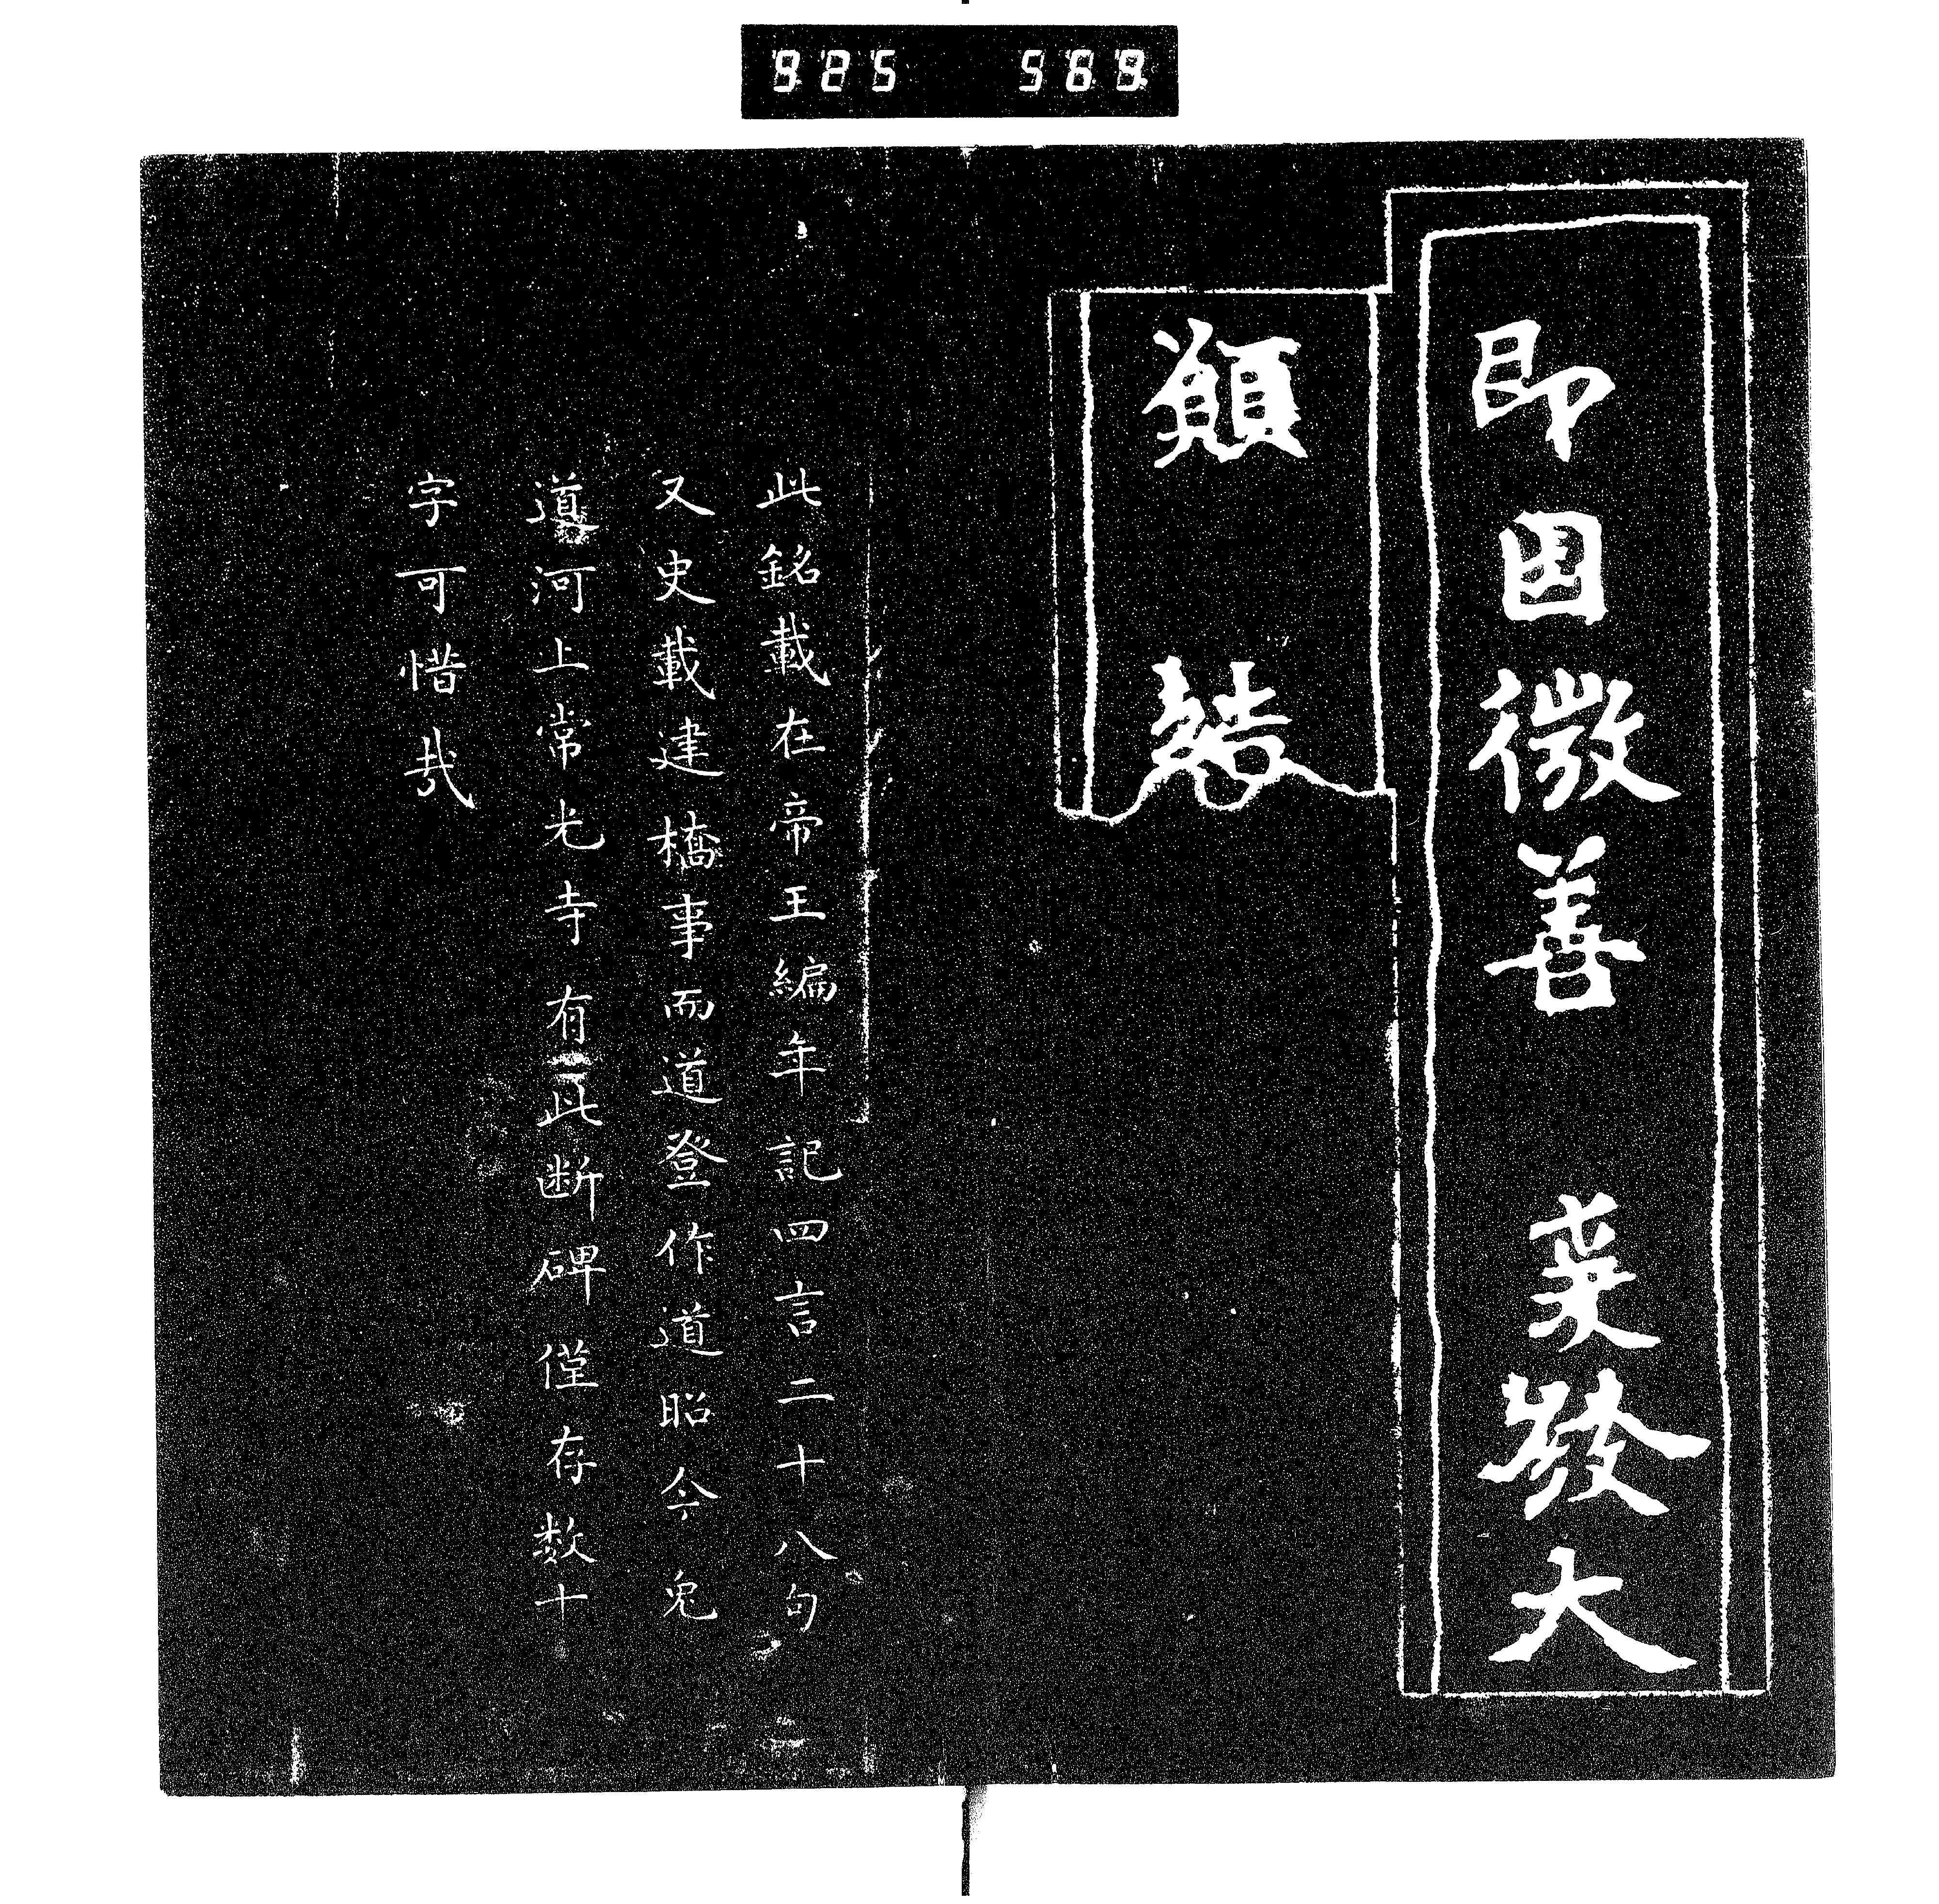 925 569
即因微善 爰發大
願 結
此銘載在帝王編年記四言二十八句
又史載建橋事而道登作道昭今兔
道河上常光寺有此断碑僅存数十
字可惜哉